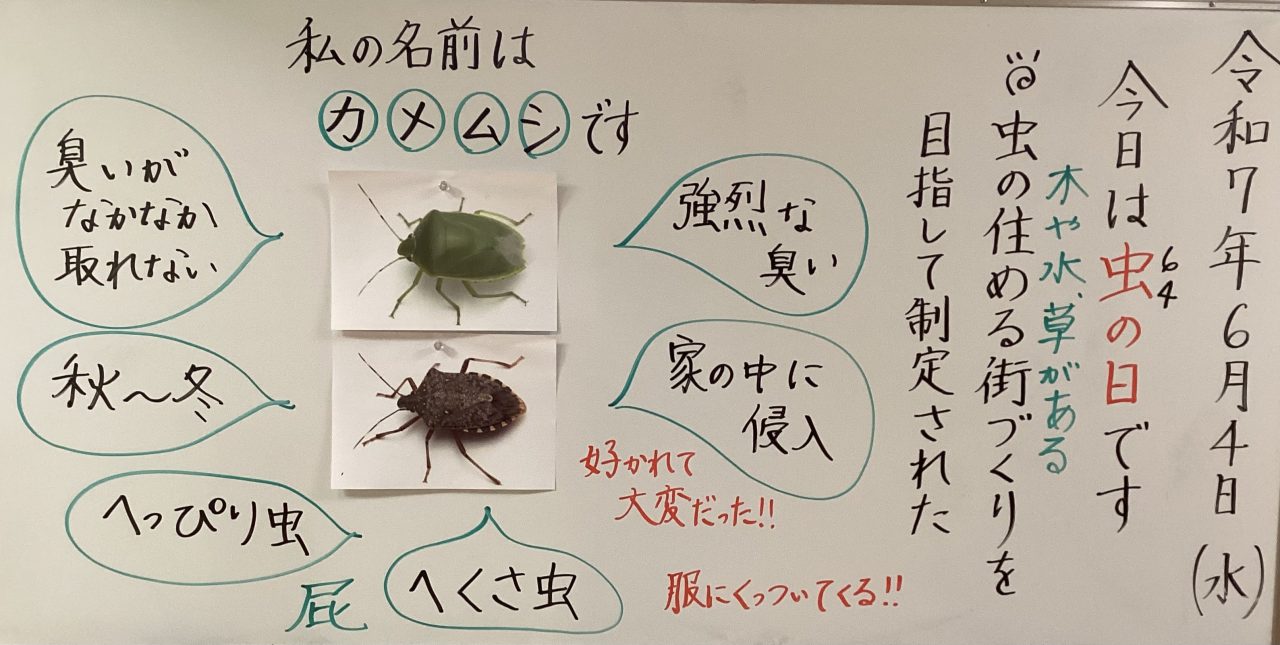 令和7年6月4日(水)
今日は虫の日です
6 4
木や水、草がある
虫の住める街づくりを
目指して制定された
私の名前は
カメムシです
強烈な
臭い
家の中に
侵入
好かれて
大変だった!!
服にくっついてくる!!
臭いが
なかなか
取れない
秋〜冬
へっぴり虫
へくさ虫
屁